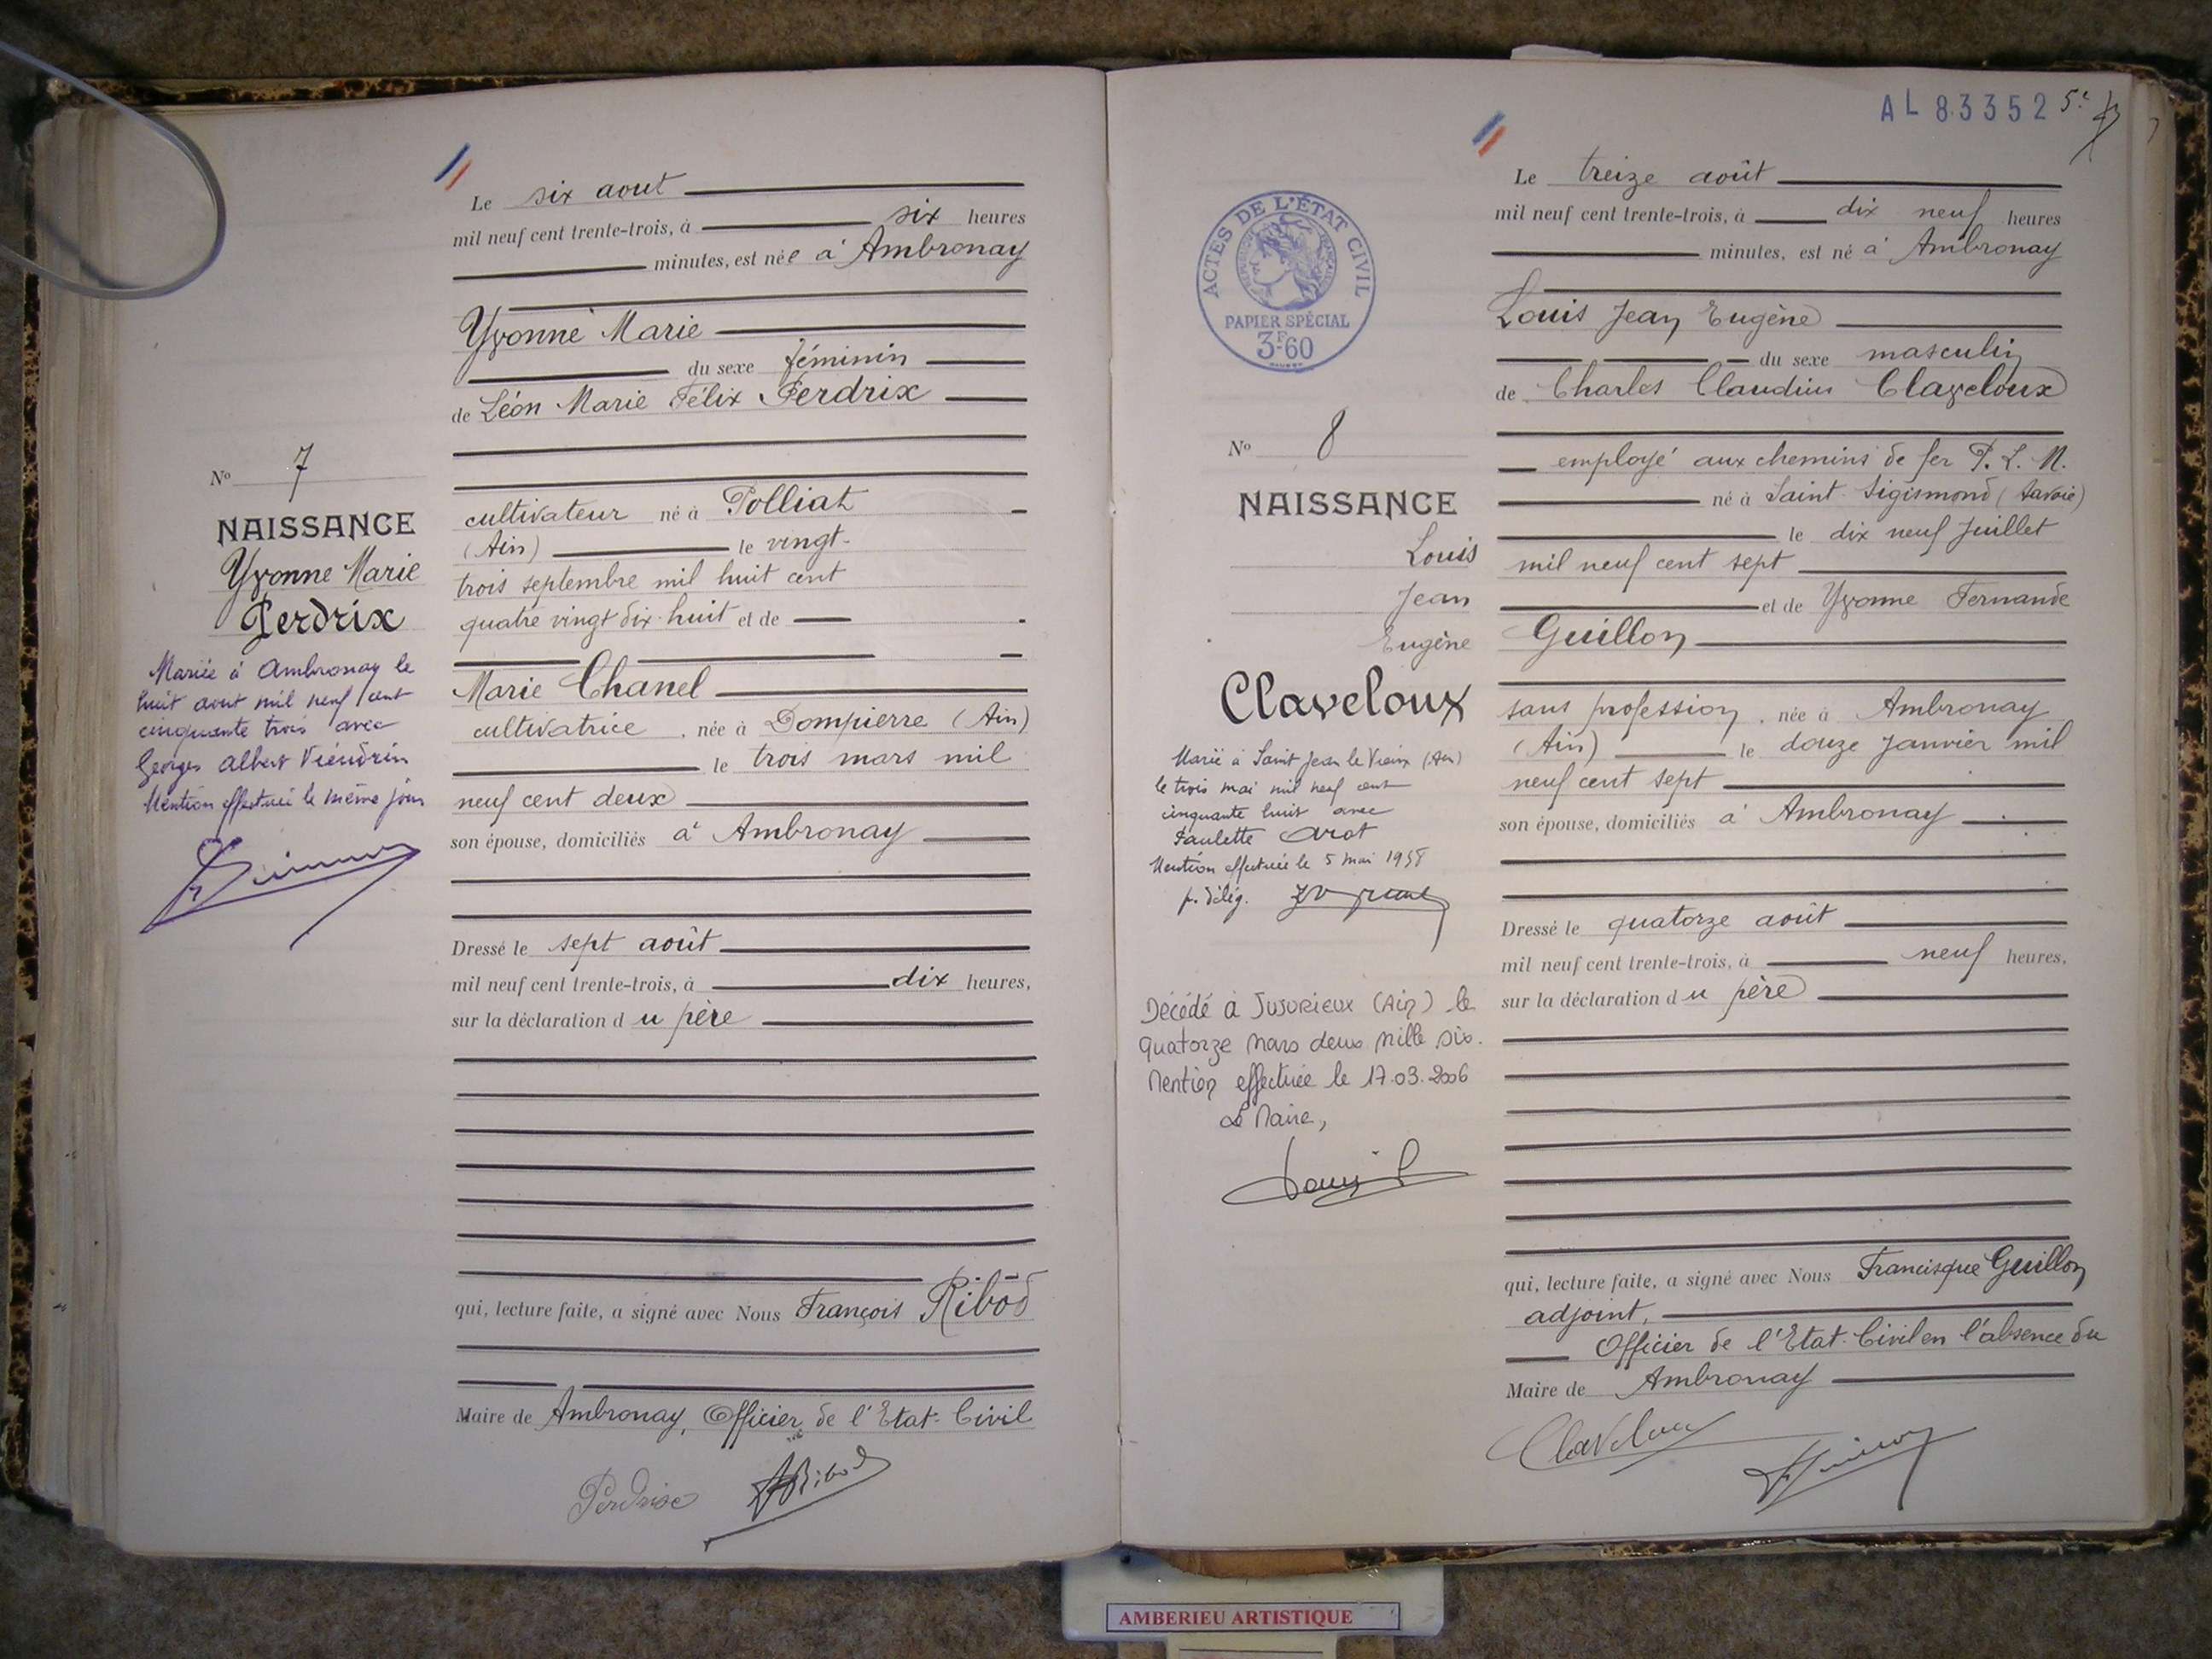 Le six aout
mil neuf cent trente-trois, à six heures
minutes, est née à Ambronay
Yvonne Marie
du sexe féminin
de Léon Marie Félix Perdrix
cultivateur né à Polliat
(Ain) le vingt-
trois septembre mil huit cent
quatre vingt dix-huit et de
Marie Chanel
cultivatrice, née à Dompierre (Ain)
le trois mars mil
neuf cent deux
son épouse, domiciliés à Ambronay
Dressé le sept août
mil neuf cent trente-trois, à dix heures,
sur la déclaration du père
qui, lecture faite, a signé avec Nous François Ribod
Maire de Ambronay, Officier de l'Etat-Civil
Perdrix
Ribod
No 7
NAISSANCE
Yvonne Marie
Perdrix
Mariée à Ambronay le
huit aout mil neuf cent
cinquante trois avec
Georges Albert
Mention effectuée le même jour
AL 83352
ACTES DE L'ÉTAT CIVIL
RÉPUBLIQUE FRANÇAISE
PAPIER SPÉCIAL
3F60
Le treize août
mil neuf cent trente-trois, à dix neuf heures
minutes, est né à Ambronay
Louis Jean Eugène
du sexe masculin
de Charles Claudius Claveloux
employé aux chemins de fer P. L. M.
né à Saint Sigismond (Savoie)
le dix neuf Juillet
mil neuf cent sept
et de Yvonne Fernande
Guillon
sans profession, née à Ambronay
(Ain) le douze Janvier mil
neuf cent sept
son épouse, domiciliés à Ambronay
Dressé le quatorze août
mil neuf cent trente-trois, à neuf heures,
sur la déclaration du père
qui, lecture faite, a signé avec Nous Francisque Guillon
adjoint,
Officier de l'Etat-Civil en l'absence du
Maire de Ambronay
Claveloux
No 8
NAISSANCE
Louis
Jean
Eugène
Claveloux
Marié à Saint Jean le Vieux (Ain)
le trois mai mil neuf cent
cinquante huit avec
Paulette Arot
Mention effectuée le 5 mai 1958
p. délég.
Décédé à Jujurieux (Ain) le
quatorze mars deux mille six.
Mention effectuée le 17.03.2006
Le Maire,
AMBERIEU ARTISTIQUE